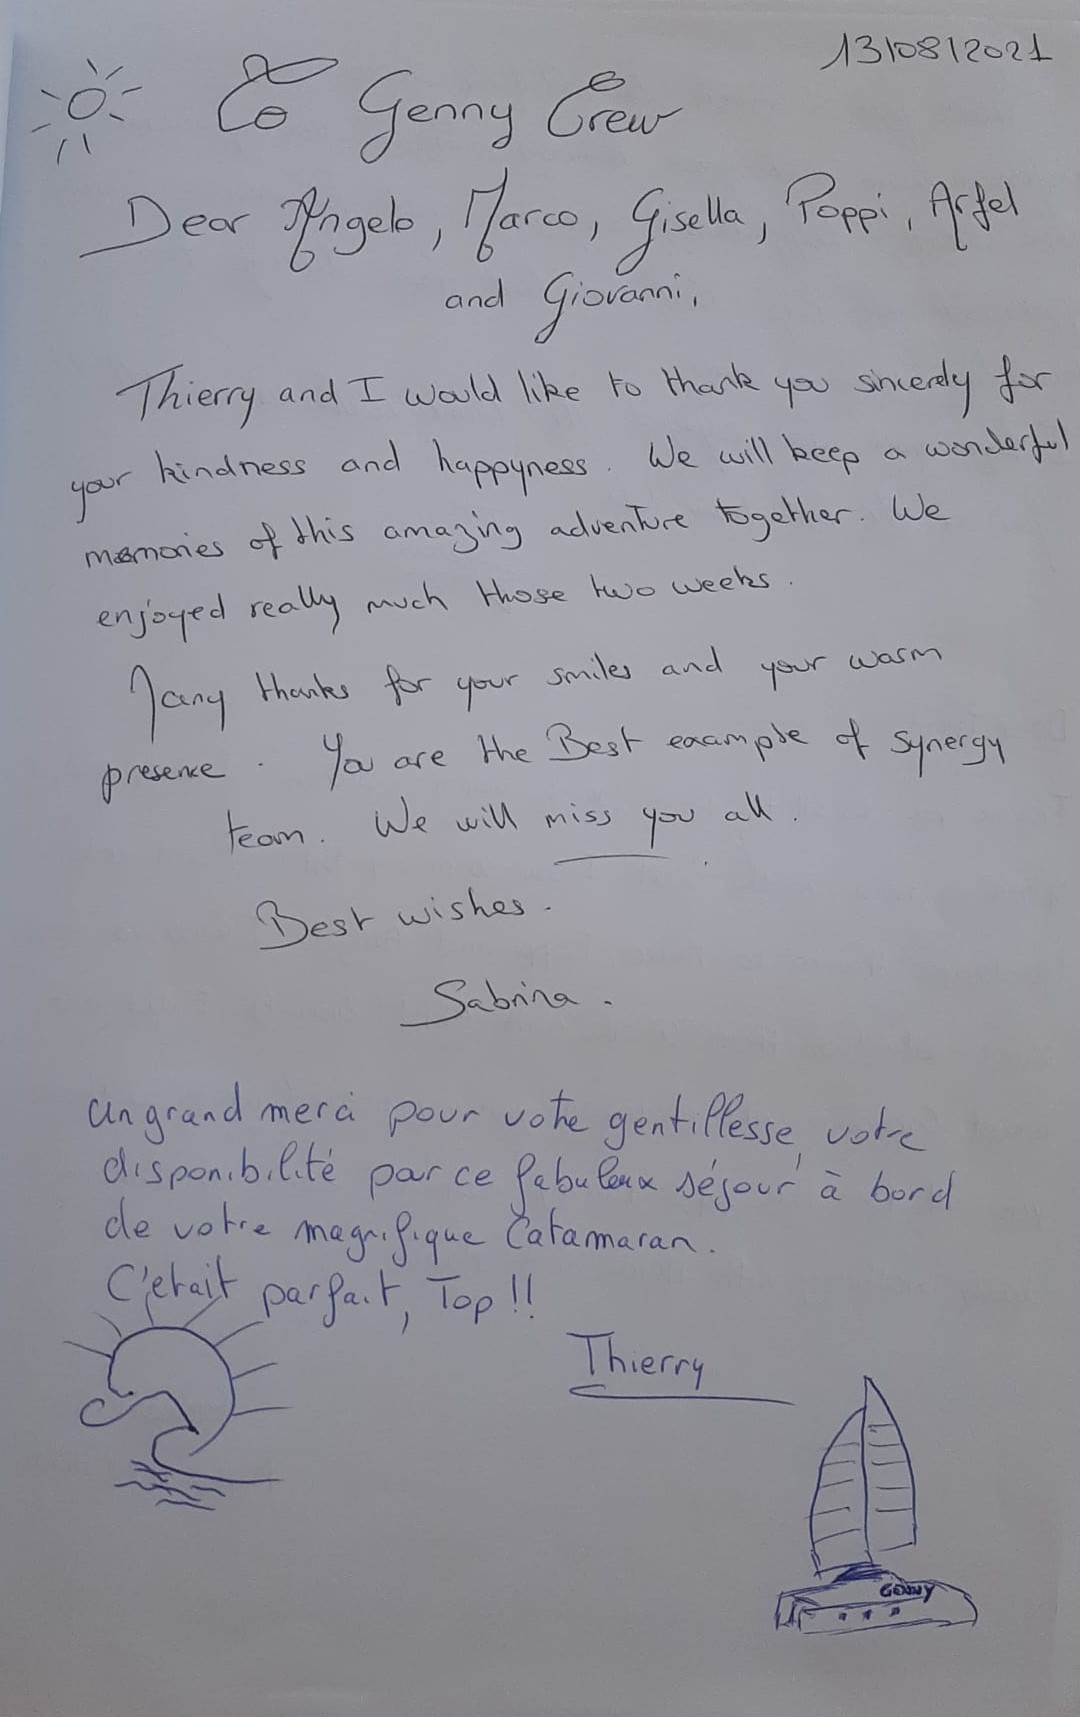 13/08/2021
To Genny Crew
Dear Angelo, Marco, Gisella, Poppi, Arfel
and Giovanni,
Thierry and I would like to thank you sincerely for
your kindness and happyness. We will keep a wonderful
memories of this amazing adventure together. We
enjoyed really much those two weeks.
Many thanks for your smiles and your warm
presence. You are the Best example of synergy
team. We will miss you all.
Best wishes.
Sabrina.
un grand merci pour votre gentillesse, votre
disponibilité par ce fabuleux séjour à bord
de votre magnifique Catamaran.
C'etait parfait, Top !!
Thierry
GENNY